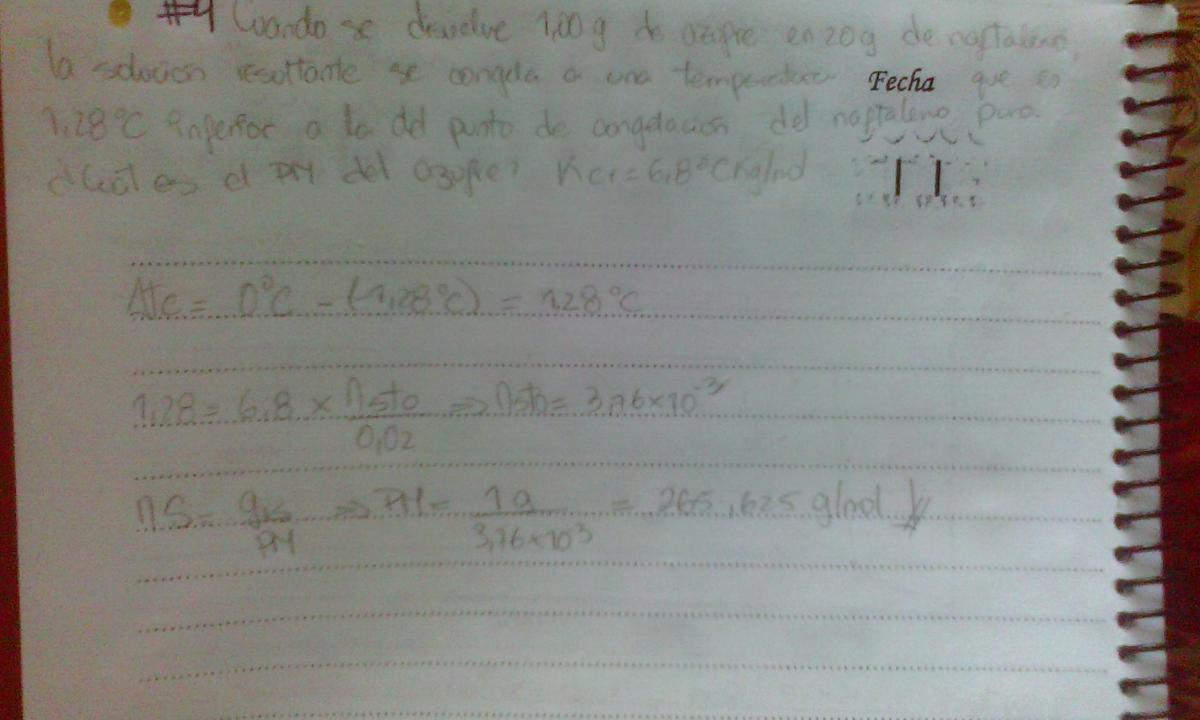 #4 Cuando se disuelve 1,00 g de azufre en 20 g de naftaleno,
la solución resultante se congela a una temperatura que es
Fecha
1,28°C inferior a la del punto de congelación del naftaleno puro.
¿Cuál es el PM del azufre? Kcr = 6,8°C Kg/mol
ΔTc = 0°C - (-1,28°C) = 1,28°C
1,28 = 6,8 × nsto / 0,02 => nsto = 3,76×10⁻³
nS = grs / PM => PM = 1g / 3,76×10⁻³ = 265,625 g/mol